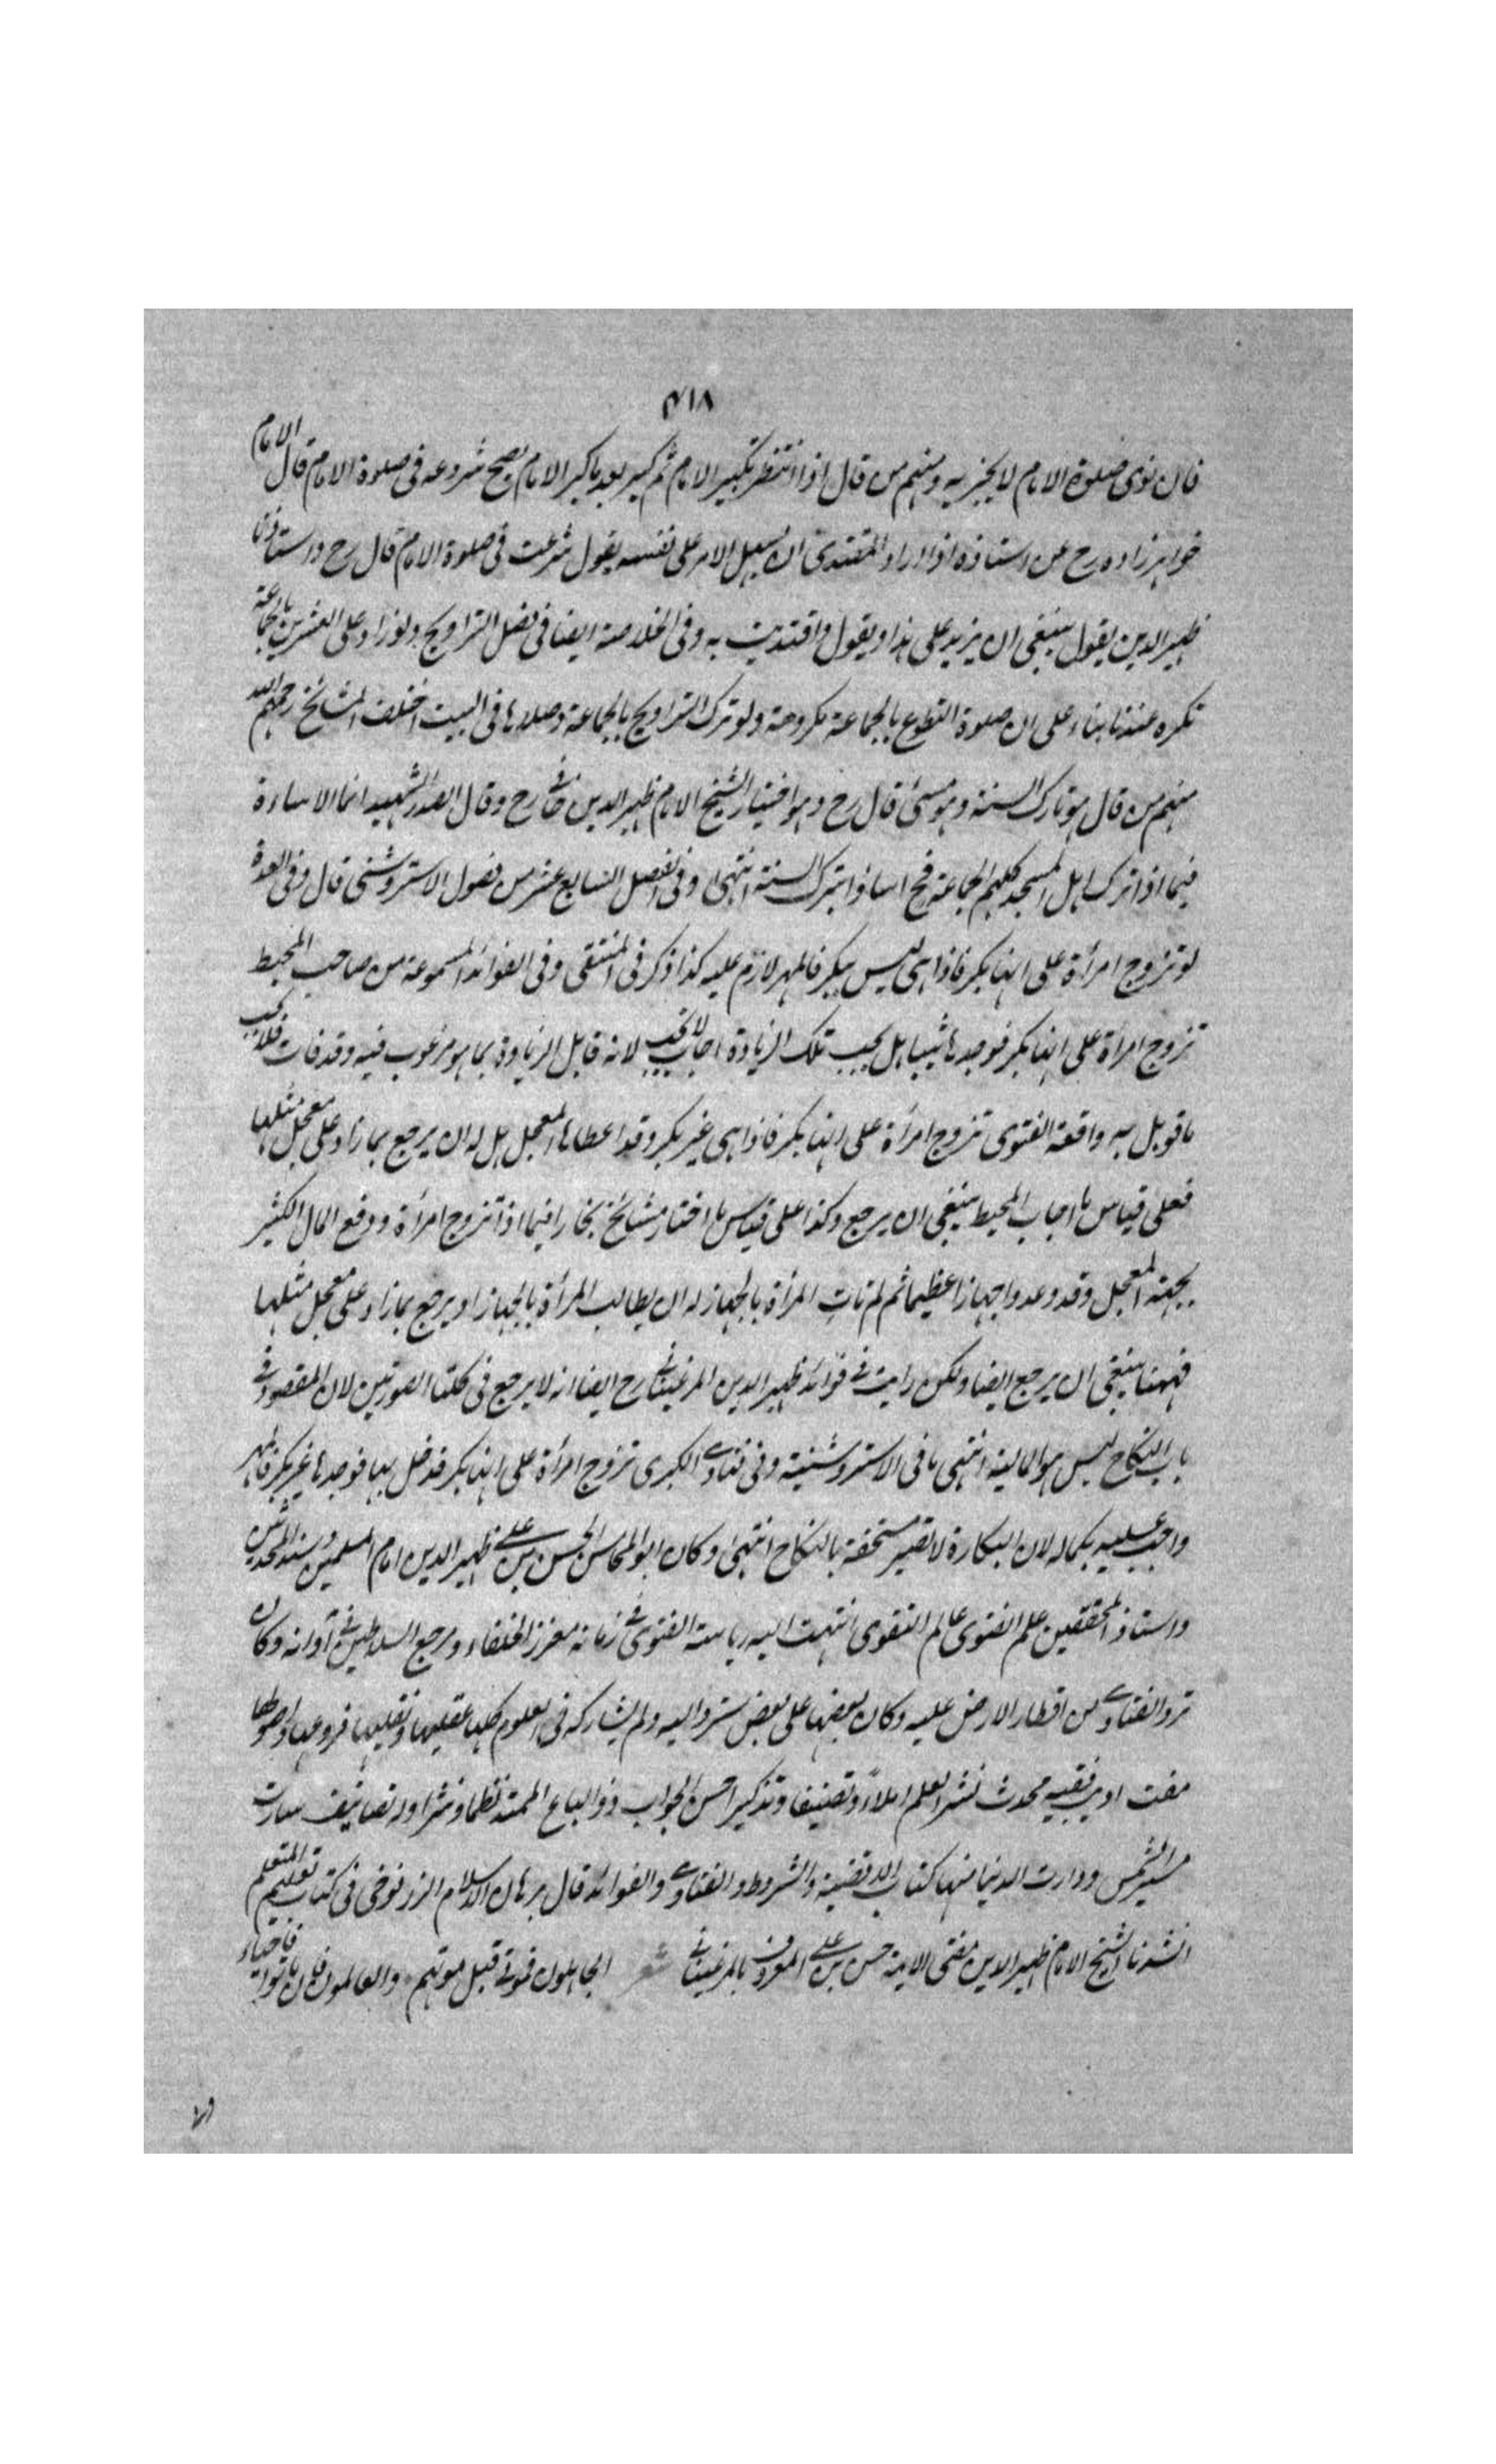 ٤١٨
فان نوى صلوة الامام لا يجزيه ومنهم من قال اذا انتظر تكبير الامام ثم كبر بعد ما كبر الامام يصح شروعه فى صلوة الامام قال الامام
خواهرزاده رح عن استاذه اذا اراد المقتدى ان يسهل الامر على نفسه يقول شرعت فى صلوة الامام قال رح واستاذنا
ظهير الدين يقول ينبغى ان يزيد على هذا ويقول واقتديت به وفى الخلاصة ايضا فى فصل التراويح ولو زاد على العشرين بالجماعة
تكره عندنا بناء على ان صلوة التطوع بالجماعة مكروهة ولو ترك التراويح بالجماعة وصلاها فى البيت اختلف المشايخ رحمهم الله
منهم من قال هو تارك السنة وهو مسئ قال رح وهو اختيار الشيخ الامام ظهير الدين رح وقال الصدر الشهيد انما الاساءة
فيما اذا ترك اهل المسجد كلهم الجماعة فح اساؤا بترك السنة انتهى وفى الفصل السابع عشر من فصول الاستروشنى قال وفى العدة
لو تزوج امرأة على انها بكر فاذا هى ليس ببكر فالمهر لازم عليه كذا ذكر فى المنتقى وفى الفوائد المسموعة من صاحب المحيط
تزوج امرأة على انها بكر فوجدها ثيبا هل يجب تلك الزيادة اجاب لا تجب لانه قابل الزيادة بما هو مرغوب فيه وقد فات فلا يجب
ما قوبل به واقعة الفتوى تزوج امرأة على انها بكر فاذا هى غير بكر وقد اعطاها المعجل هل له ان يرجع بما زاد على معجل مثلها
فعلى قياس ما اجاب المحيط ينبغى ان يرجع وكذا على قياس ما اختار مشايخ بخارا فيما اذا تزوج امرأة ودفع المال الكثير
بجهة المعجل وقد وعدوا جهازا عظيما ثم لم تات المرأة بالجهاز له ان يطالب المرأة بالجهاز او يرجع بما زاد على معجل مثلها
فههنا ينبغى ان يرجع ايضا ولكن رايت فى فوائد ظهير الدين المرغينانى رح ايضا انه لا يرجع فى كلتا الصورتين لان المقصود فى
باب النكاح ليس هو المالية انتهى ما فى الاستروشنية وفى فتاوى الكبرى تزوج امرأة على انها بكر فدخل بها فوجدها غير بكر فالمهر
واجب عليه بكماله لان البكارة لا تصير مستحقة بالنكاح انتهى وكان ابو المحاسن الحسن بن على ظهير الدين امام المسلمين وسند المحدثين
واستاذ المحققين علم الفتوى عالم التقوى انتهت اليه رياسة الفتوى فى زمانه معزز الخلفاء ومرجع السلاطين فى آوانه وكان
ترد الفتاوى من اقطار الارض عليه وكان بعضها على بعض ستردا اليه ولم يشاركه فى العلوم كلها عقليها ونقليها فروعها واصولها
مفت اديب فقيه محدث نشر العلم املاءً وتصنيفا وتذكيرا حسن الجواب ذو الباع الممتد نظما ونثرا وله تصانيف سارت
مسير الشمس ودارت الدنيا منها كتاب الاقضية والشروط والفتاوى والفوائد قال برهان الاسلام الزرنوخى فى كتاب تعليم المتعلم
انشدنا الشيخ الامام ظهير الدين مفتى الائمة حسن بن على المعروف بالمرغينانى شعر الجاهلون فموتى قبل موتهم والعالمون فان ماتوا فاحياء